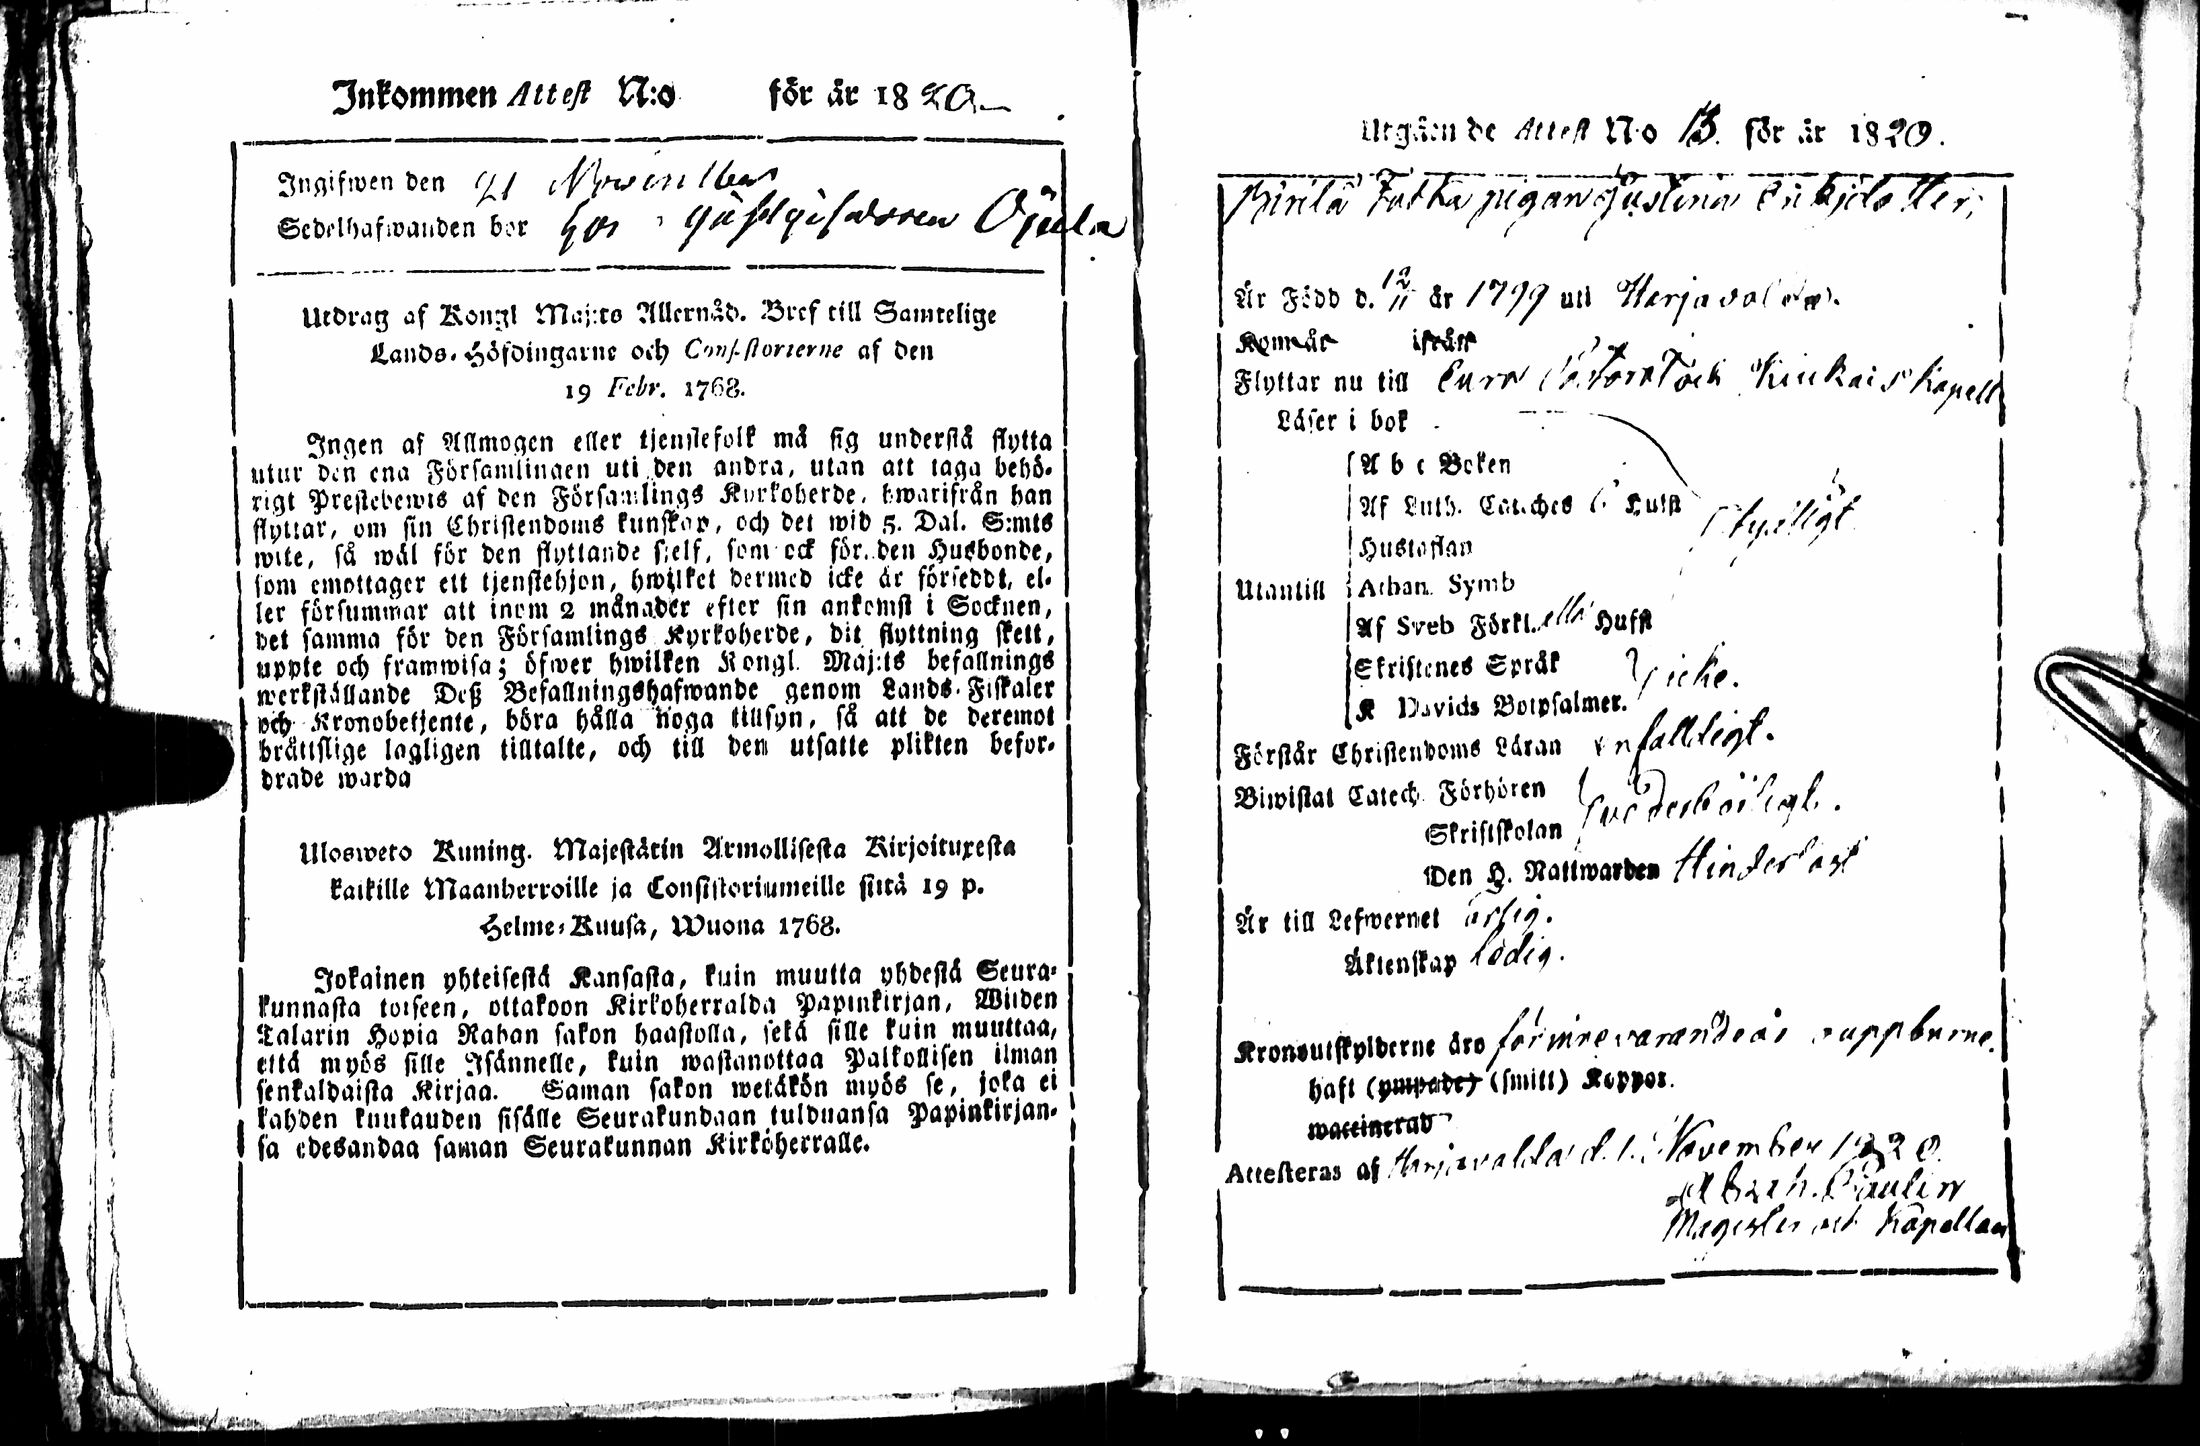 Inkommen Attest N:o för år 1820
Ingifwen den 21 November
Sedelhafwanden bor hos Ojula
Utdrag af Kongl Maj:ts Allernåd. Bref till Samtelige
Lands-Höfdingarne och Consistorierne af den
19 Febr. 1768.
Ingen af Allmogen eller tjenstefolk må sig understå flytta
utur den ena Församlingen uti den andra, utan att taga behö-
rigt Prestebewis af den Församlings Kyrkoherde, hwarifrån han
flyttar, om sin Christendoms kunskap, och det wid 5. Dal. S:mts
wite, så wäl för den flyttande sjelf, som ock för den Husbonde,
som emottager ett tjenstehjon, hwilket dermed icke är försedt, el-
ler försummar att inom 2 månader efter sin ankomst i Socknen,
det samma för den Församlings Kyrkoherde, dit flyttning skett,
uppte och framwisa; öfwer hwilken Kongl. Maj:ts befallnings
werkställande Deß Befallningshafwande genom Lands-Fiskaler
och Kronobetjente, böra hålla noga tillsyn, så att de deremot
brättslige lagligen tilltalte, och till den utsatte plikten befor-
drade warda
Ulosweto Kuning. Majestätin Armollisesta Kirjoituxesta
kaikille Maanherroille ja Consistoriumeille siitä 19 p.
Helme-Kuusa, Wuona 1768.
Jokainen yhteisestä Kansasta, kuin muutta yhdestä Seura-
kunnasta toiseen, ottakoon Kirkoherralda Papinkirjan, Wiiden
Talarin Hopia Rahan sakon haastolla, sekä sille kuin muuttaa,
että myös sille Isännelle, kuin wastanottaa Palkollisen ilman
senkaldaista Kirjaa. Saman sakon wetäkön myös se, joka ei
kahden kuukauden sisälle Seurakundaan tulduansa Papinkirjan-
sa edesandaa saman Seurakunnan Kirkoherralle.
Utgående Attest N:o 13. för år 1820.
pigan Justina Eriksdotter,
Är Född d. 12/11 år 1799 uti Harjavalda.
Kom år ifrån
Flyttar nu till Eura Pastorat och Kiukais Kapell
Läser i bok
A b c Boken
Af Luth. Cateches 6 Hufst
Hustaflan
Utantill Athan. Symb
Af Sveb Förkl. Hufst
Skriftenes Språk
K Davids Botpsalmer. icke.
Förstår Christendoms Läran enfalldigt.
Biwistat Catech. Förhören
Skriftskolan
Den H. Nattwarden
Är till Lefwernet ärlig.
Äktenskap ledig.
Kronoutskylderne äro för innevarande år uppburne.
haft (ympade) (smitt) Koppor.
waccinerad
Attesteras af Harjavalda d. November 1820.
Abrah. Paulin
Magister och Kapellan